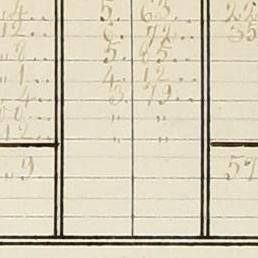 4.. 5. 63.. 22
12.. 6. 72.. 35
5. 85..
1.. 4. 12..
3. 79..
" "
12.. " "
..9 57